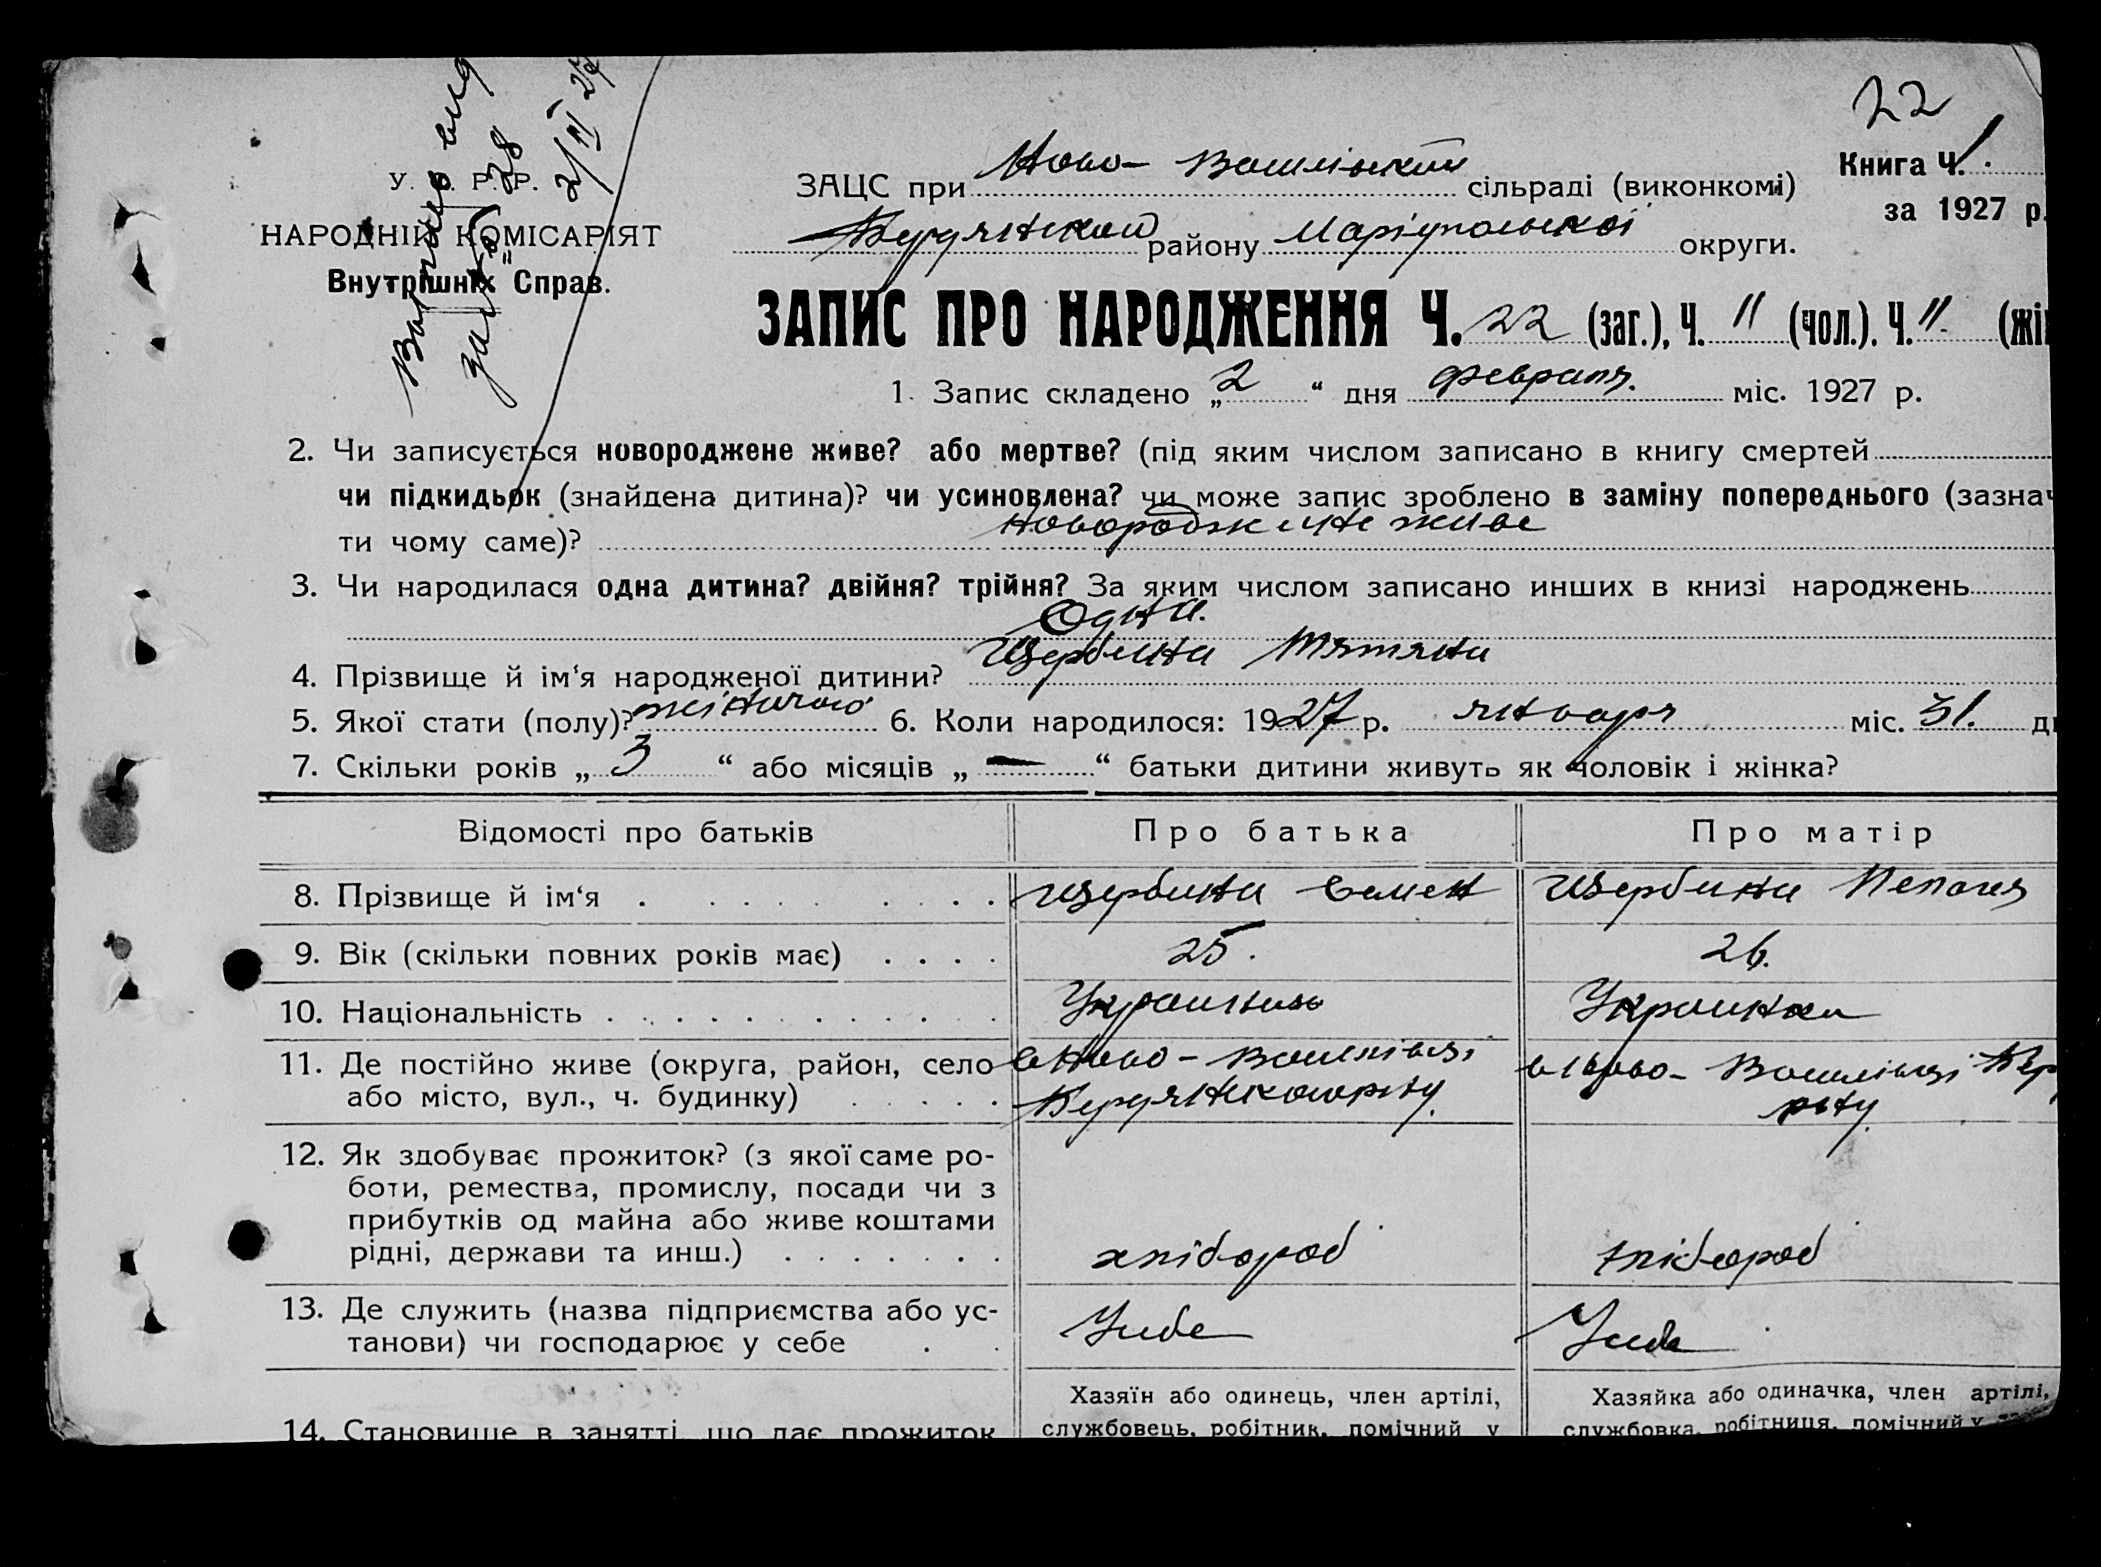 22
Книга Ч. 1.
за 1927 р.
У. С. Р. Р.
НАРОДНІЙ КОМІСАРІЯТ
Внутрішніх Справ.
28
2/II 27
ЗАЦС при Ново-Василівській сільраді (виконкомі)
Бердянской району Маріупольської округи.
ЗАПИС ПРО НАРОДЖЕННЯ Ч. 22 (заг.), Ч. 11 (чол.). Ч. 11. (жі
1. Запис складено „2“ дня февраля. міс. 1927 р.
2. Чи записується новороджене живе? або мертве? (під яким числом записано в книгу смертей
чи підкидьок (знайдена дитина)? чи усиновлена? чи може запис зроблено в заміну попереднього (зазнач
ти чому саме)? новороджене живе
3. Чи народилася одна дитина? двійня? трійня? За яким числом записано инших в книзі народжень
Одна.
4. Прізвище й ім‘я народженої дитини? Щербина Тятяна
5. Якої стати (полу)? жіночого 6. Коли народилося: 1927 р. января міс. 31. д
7. Скільки років „3“ або місяців „—“ батьки дитини живуть як чоловік і жінка?
Відомості про батьків Про батька Про матір
8. Прізвище й ім‘я Щербина Семен Щербина Пелагея
9. Вік (скільки повних років має) 25. 26.
10. Національність Украинець Украинка
11. Де постійно живе (округа, район, село
або місто, вул., ч. будинку)
в Ново-Василівці
Бердянського р-ну.
в Ново-Василівці Бер
р-ну
12. Як здобуває прожиток? (з якої саме ро-
боти, ремества, промислу, посади чи з
прибутків од майна або живе коштами
рідні, держави та инш.) хлібороб хлібороб
13. Де служить (назва підприємства або ус-
танови) чи господарює у себе Усебе Усебе
Хазяїн або одинець, член артілі,
службовець, робітник, помічний у
Хазяйка або одиначка, член артілі,
службовка, робітниця, помічний у
14. Становище в занятті, що дає прожиток